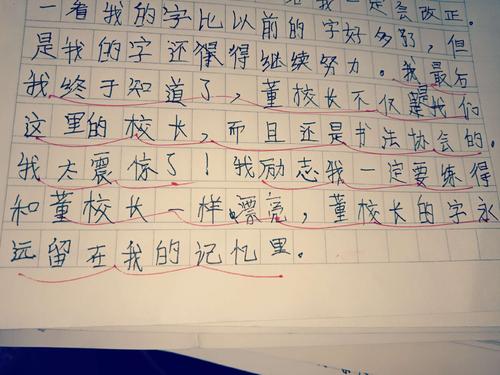 我一定会改正。
一看我的字比以前的字好多了，但
是我的字还得继续努力。我最后
我终于知道了，董校长不仅是我们
这里的校长，而且还是书法协会的。
我太震惊了！我励志我一定要练得
和董校长一样漂亮，董校长的字永
远留在我的记忆里。